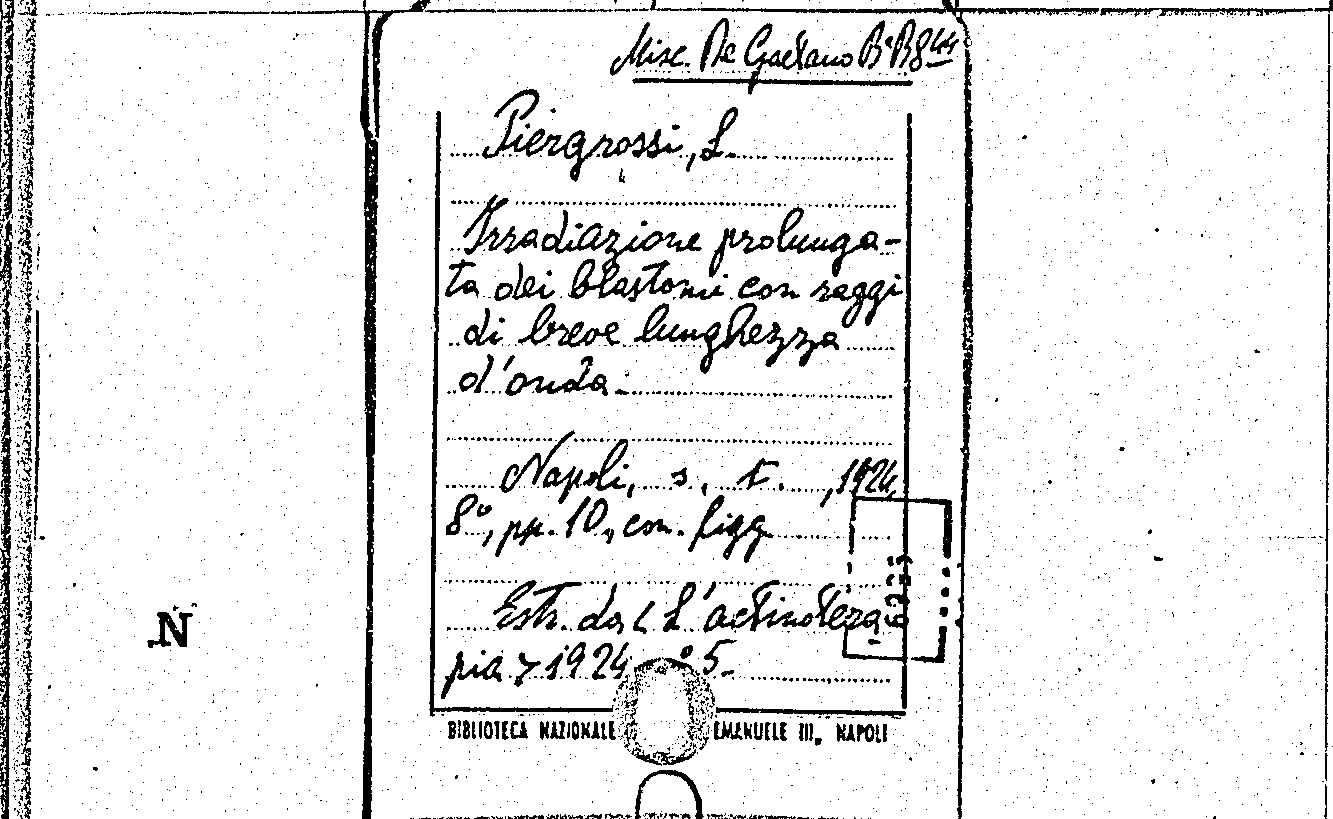 Misc. De Gaetano B a B 8 44
Piergrossi, L.
Irradiazione prolunga-
ta dei blastomi con raggi
di breve lunghezza
d'onda.
Napoli, s. t., 1924
8°, pp. 10, con figg.
Estr. da < L'actinotera
pia > 1924 ° 5.
BIBLIOTECA NAZIONALE EMANUELE III, NAPOLI
N